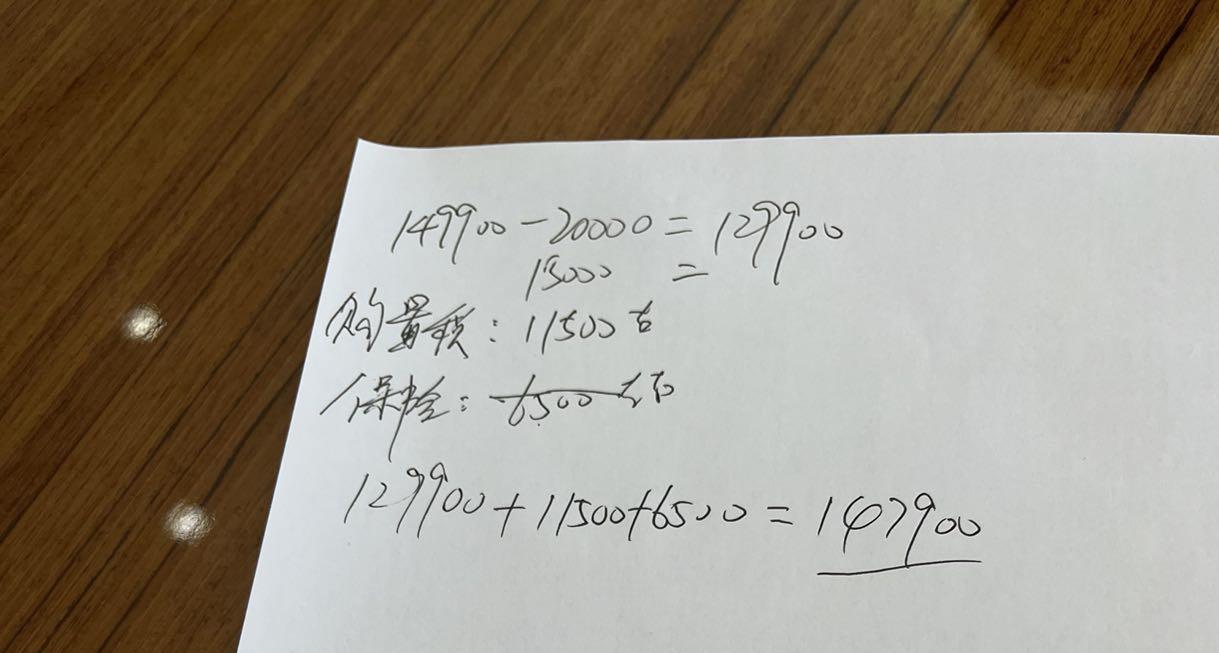 149900-20000=129900
15000 =
购置税：11500左
保险：6500左右
129900+11500+6500=147900